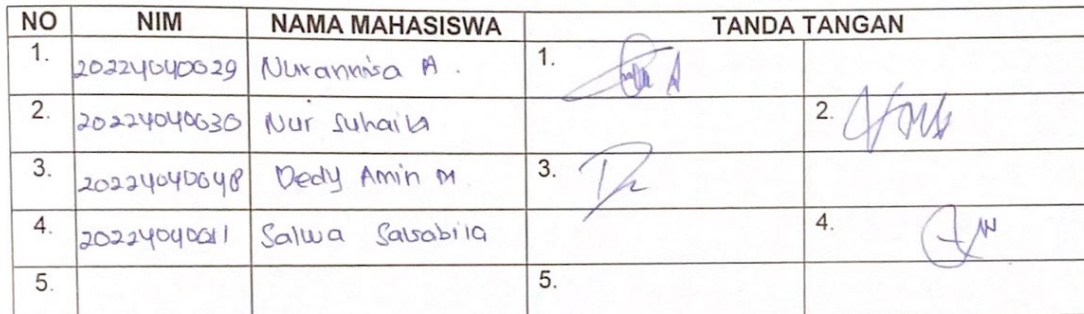 NO NIM NAMA MAHASISWA TANDA TANGAN
1. 20224040029 Nurannisa A. 1.
2. 20224040030 Nur Suhaila 2.
3. 20224040048 Dedy Amin M 3.
4. 20224040011 Salwa Salsabila 4.
5. 5.